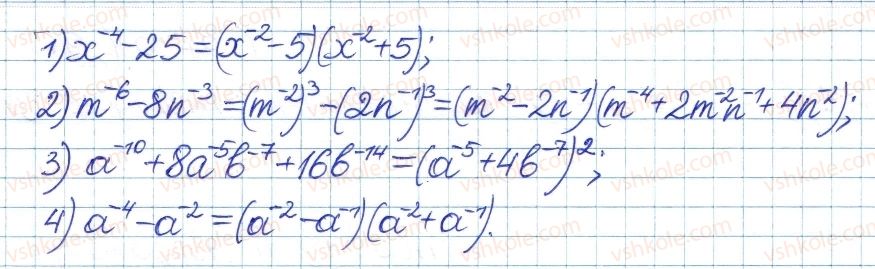 1) x⁻⁴ - 25 = (x⁻² - 5)(x⁻² + 5);
2) m⁻⁶ - 8n⁻³ = (m⁻²)³ - (2n⁻¹)³ = (m⁻² - 2n⁻¹)(m⁻⁴ + 2m⁻²n⁻¹ + 4n⁻²);
3) a⁻¹⁰ + 8a⁻⁵b⁻⁷ + 16b⁻¹⁴ = (a⁻⁵ + 4b⁻⁷)²;
4) a⁻⁴ - a⁻² = (a⁻² - a⁻¹)(a⁻² + a⁻¹).